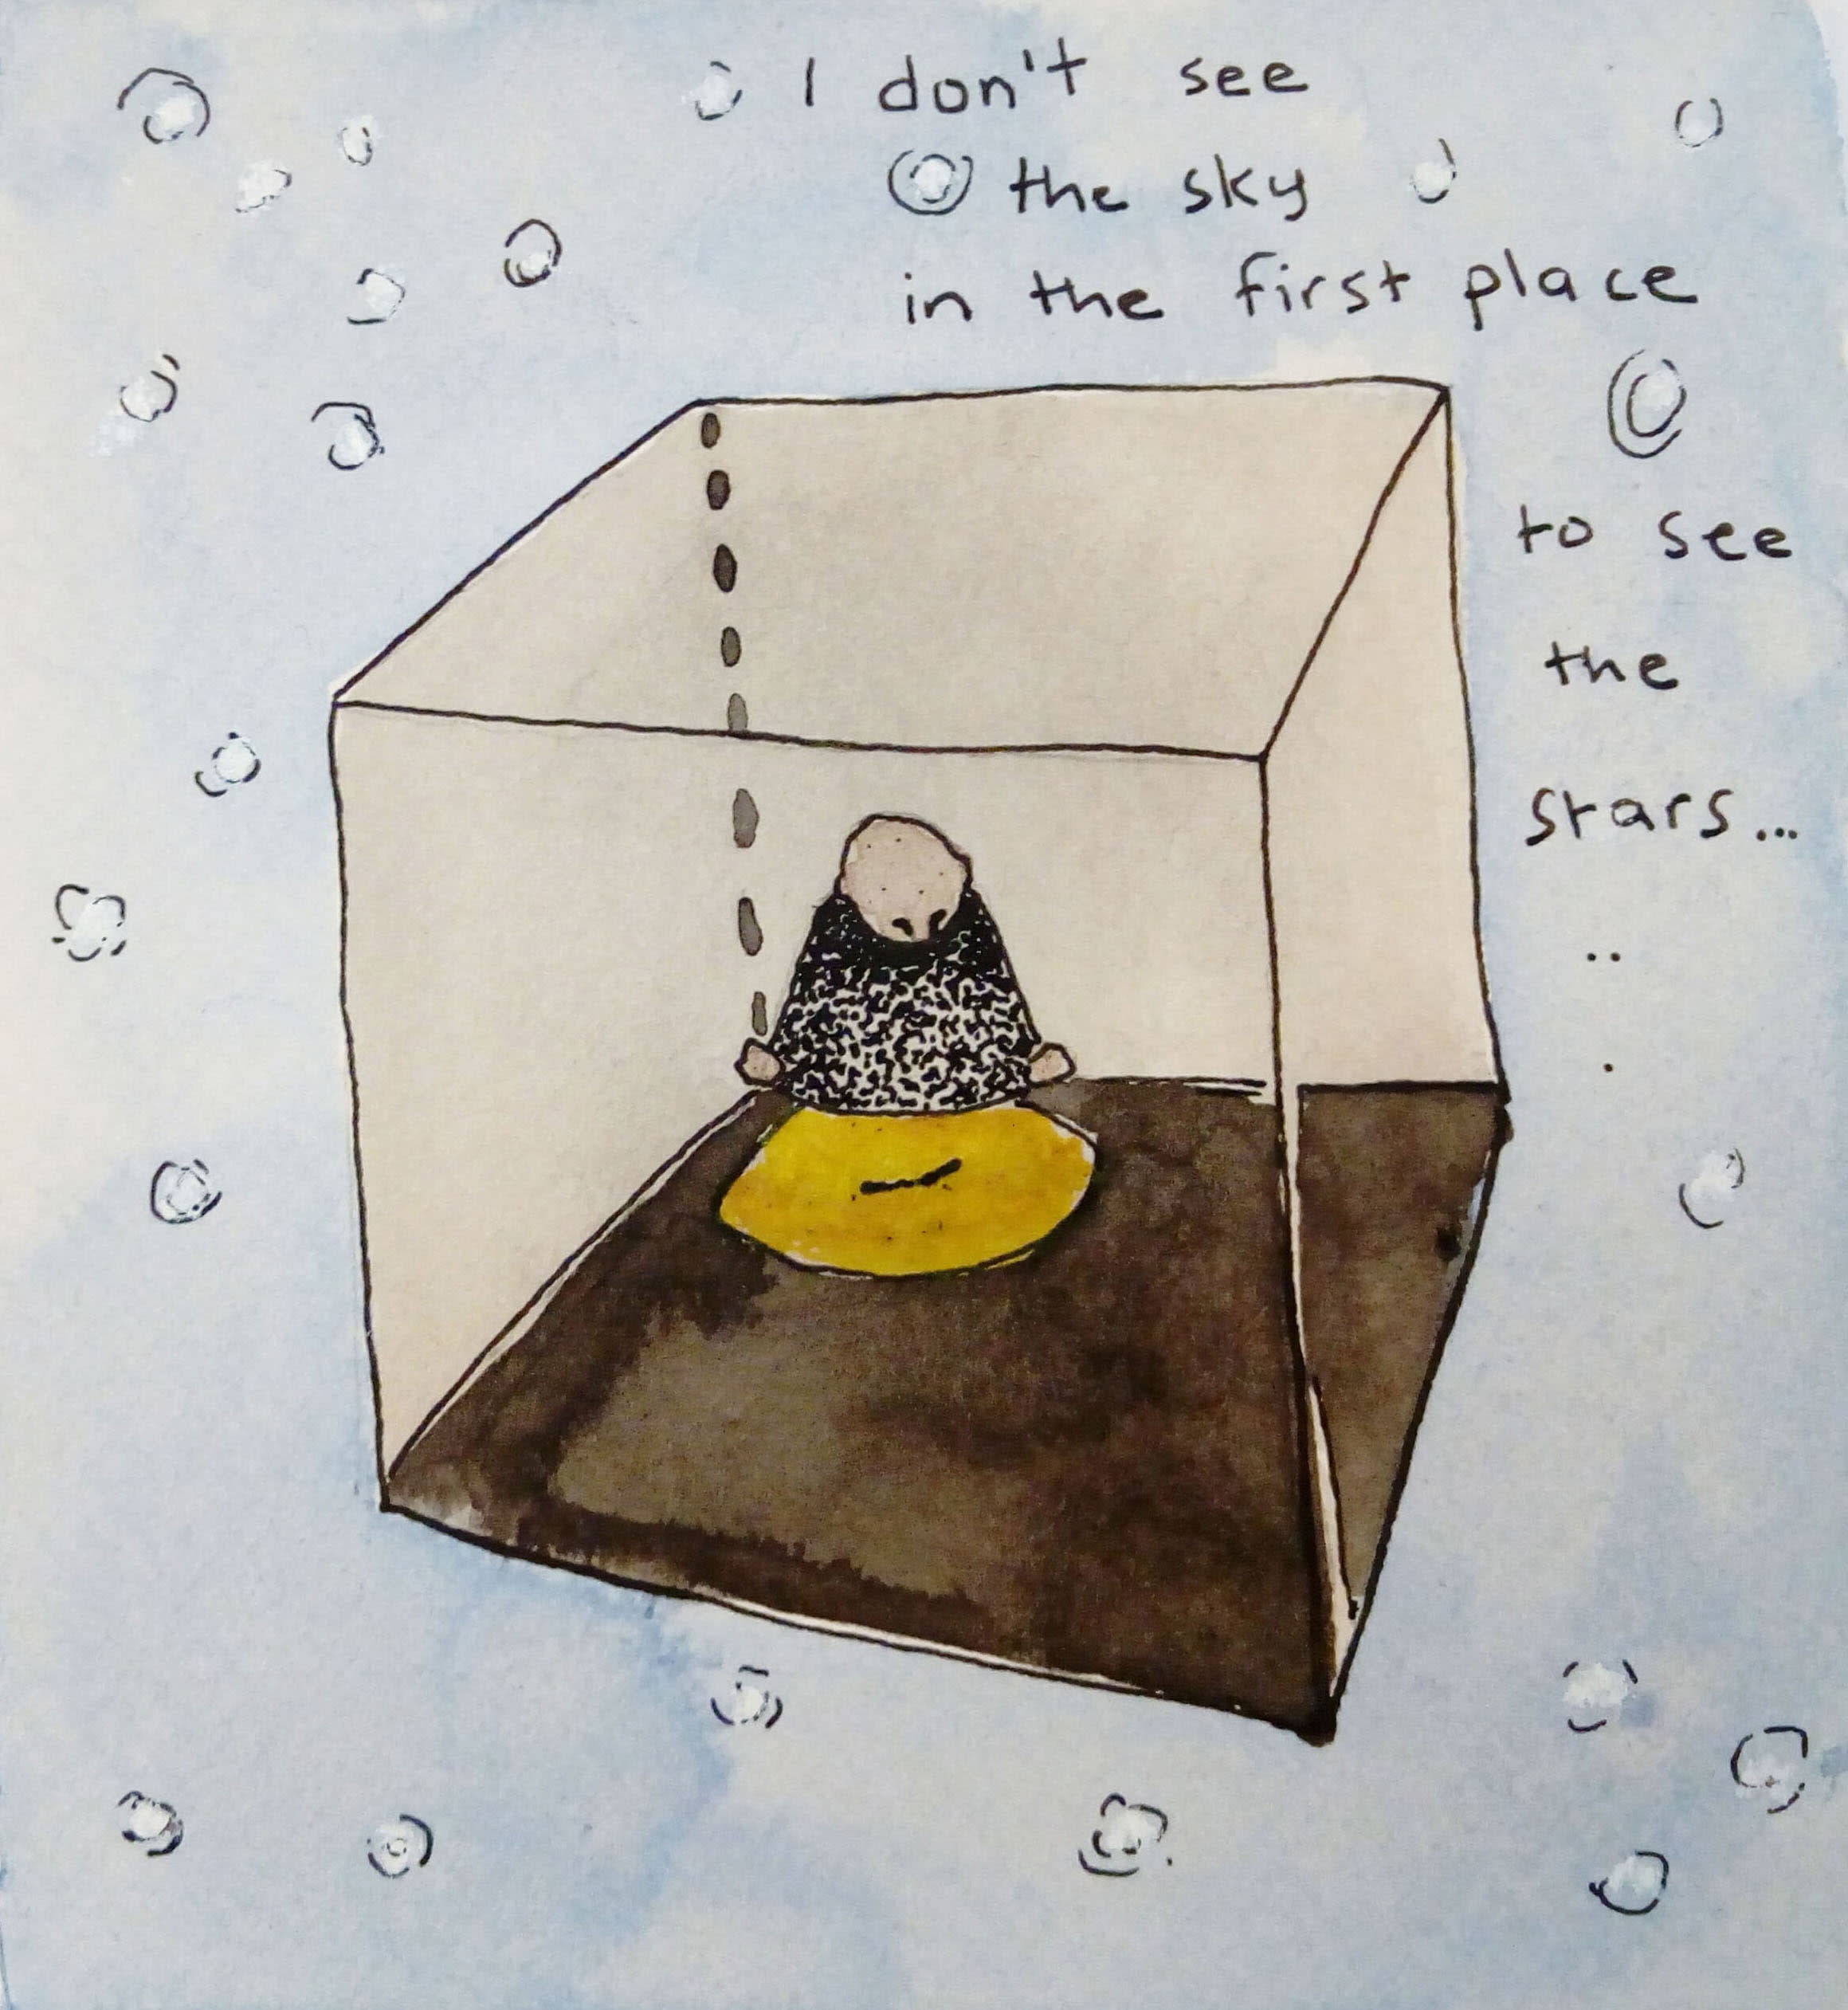 I don't see
the sky
in the first place
to see
the
stars...
..
.